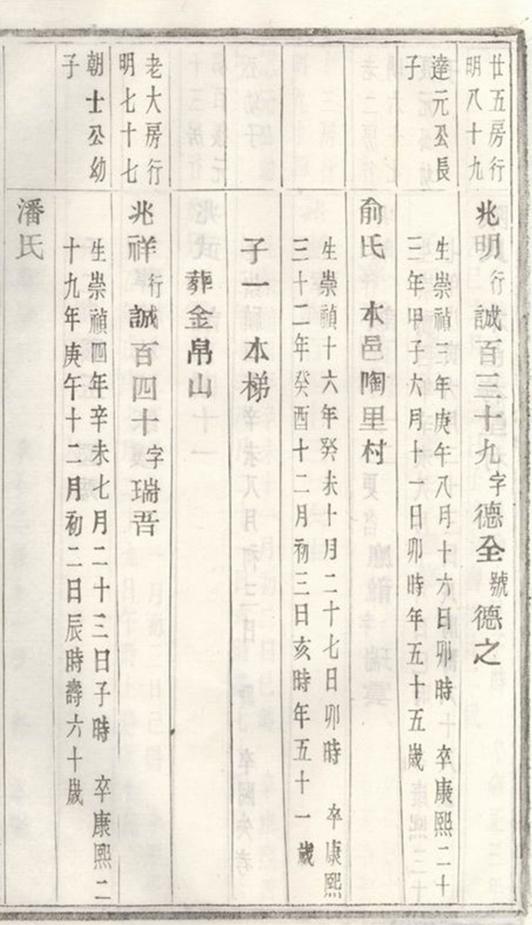 廿五房行
明八十九
兆明行誠百三十九字德全號德之
達元公長
子
生崇禎三年庚午八月十六日卯時 卒康熙二十
三年甲子六月十一日卯時年五十五歲
俞氏 本邑陶里村
生崇禎十六年癸未十月二十七日卯時 卒康熙
三十二年癸酉十二月初三日亥時年五十一歲
子一 本梯
葬金帛山
老大房行
明七十七
兆祥行誠百四十字瑞吾
朝士公幼
子
生崇禎四年辛未七月二十三日子時 卒康熙二
十九年庚午十二月初二日辰時壽六十歲
潘氏